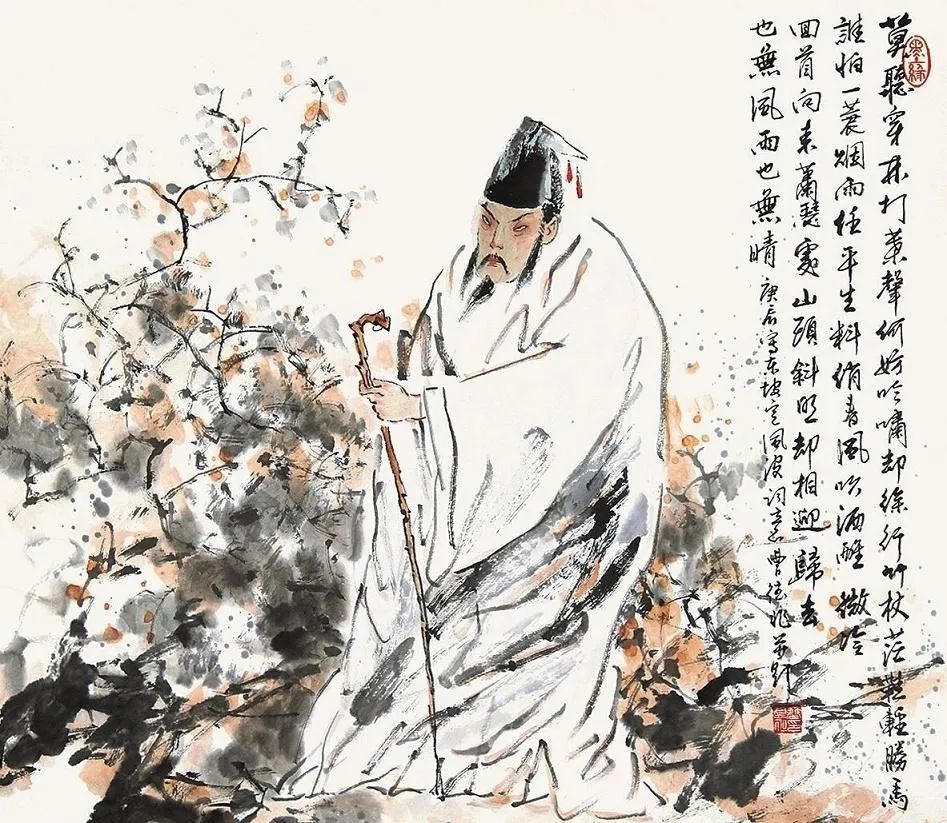 莫聽穿林打葉聲何妨吟嘯却徐行竹杖芒鞋輕勝馬
誰怕一蓑烟雨任平生料峭春風吹酒醒微冷
回首向来蕭瑟處山頭斜照却相迎歸去
也無風雨也無晴 庚辰寫東坡定風波詞意曹德兆并題
墨緣